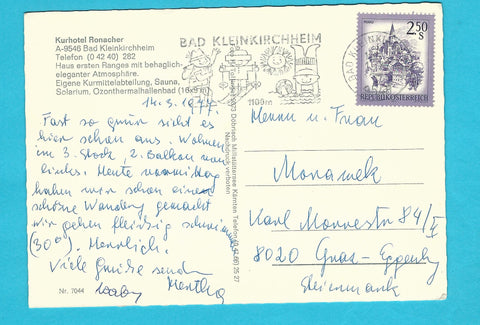 Kurhotel Ronacher
A-9546 Bad Kleinkirchheim
Telefon (0 42 40) 282
Haus ersten Ranges mit behaglich-
eleganter Atmosphäre.
Eigene Kurmittelabteilung, Sauna,
Solarium, Ozonthermalhallenbad
14.9.1977.
Fast so grün sieht es
hier schon aus. Wohnen
im 3. Stock, 2. Balkon von
links. Heute vormittag
haben wir schon eine
schöne Wanderg gemacht
wir gehen fleißig schwimmen
(30°). Herrlich.
Viele Grüße senden
Hertha
Nr. 7044
Nachdruck verboten
BAD KLEINKIRCHHEIM
1100m
BAD KLEINKIRCHHEIM
2.50
S
REPUBLIK ÖSTERREICH
Herrn u. Frau
Karl Morrestr 84/II
8020 Graz-Eggenbg
Steiermark